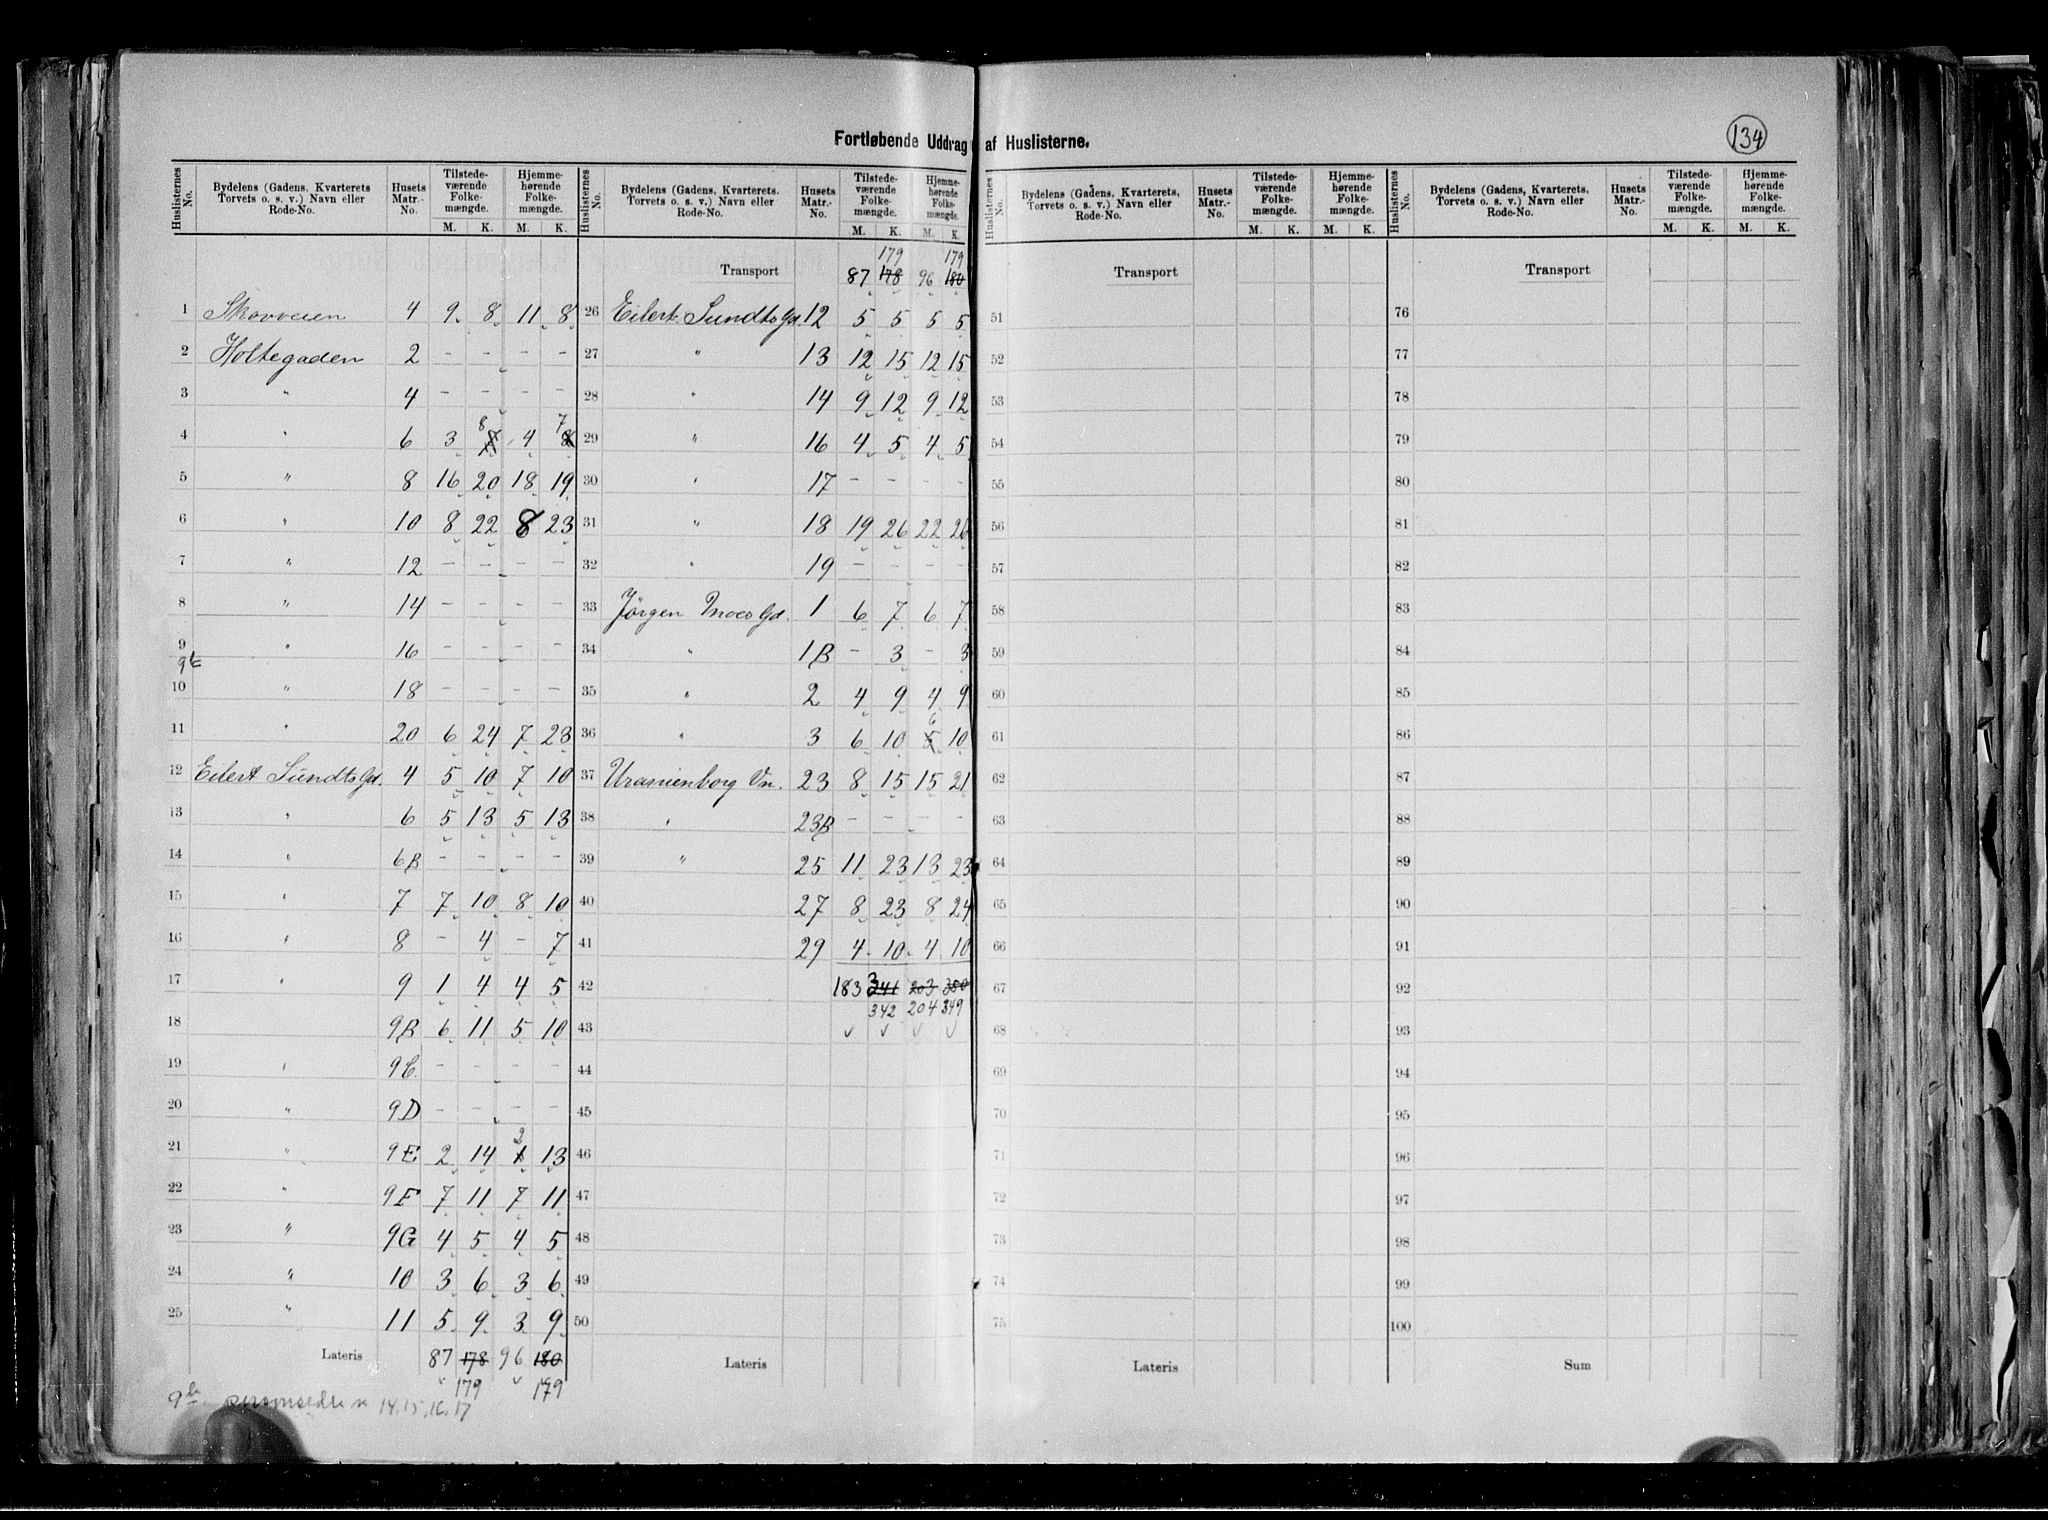 134
Fortløbende Uddrag af Huslisterne.
Huslisternes No. | Bydelens (Gadens, Kvarterets Torvets o. s. v.) Navn eller Rode-No. | Husets Matr.-No. | Tilstedeværende Folkemængde. M. K. | Hjemmehørende Folkemængde. M. K.
1 Skovveien 4 9 8 11 8
2 Holtegaden 2 - - - -
3 " 4 - - - -
4 " 6 3 8 4 7
5 " 8 16 20 18 19
6 " 10 8 22 8 23
7 " 12 - - - -
8 " 14 - - - -
9 " 16 - - - -
9b
10 " 18 - - - -
11 " 20 6 24 7 23
12 Eilert Sundts Gd. 4 5 10 7 10
13 " 6 5 13 5 13
14 " 6B - - - -
15 " 7 7 10 8 10
16 " 8 - 4 - 7
17 " 9 1 4 4 5
18 9B 6 11 5 10
19 " 9C. - - - -
20 " 9D - - - -
21 " 9E 2 14 2 13
22 " 9F 7 11 7 11
23 " 9G 4 5 4 5
24 " 10 3 6 3 6
25 " 11 5 9 3 9
Lateris 87 178 96 180
179 179
14, 15, 16, 17
Huslisternes No. | Bydelens (Gadens, Kvarterets. Torvets o. s. v.) Navn eller Rode-No. | Husets Matr.-No. | Tilstedeværende Folkemængde. M. K. | Hjemmehørende Folkemængde. M. K.
179 179
Transport 87 178 96 180
26 Eilert Sundts Gd. 12 5 5 5 5
27 " 13 12 15 12 15
28 " 14 9 12 9 12
29 " 16 4 5 4 5
30 " 17 - - - -
31 " 18 19 26 22 26
32 " 19 - - - -
33 Jörgen Moes Gd. 1 6 7 6 7
34 " 1B - 3 - 3
35 " 2 4 9 4 9
36 " 3 6 10 6 10
37 Uranienborg Vn. 23 8 15 15 21
38 " 23B - - - -
39 " 25 11 23 13 23
40 27 8 23 8 24
41 29 4 10 4 10
42 183 341 203 350
342 204 349
43
44
45
46
47
48
49
50
Lateris
Huslisternes No. | Bydelens (Gadens, Kvarterets, Torvets o. s. v.) Navn eller Rode-No. | Husets Matr.-No. | Tilstedeværende Folkemængde. M. K. | Hjemmehørende Folkemængde. M. K.
Transport
51
52
53
54
55
56
57
58
59
60
61
62
63
64
65
66
67
68
69
70
71
72
73
74
75
Lateris
Huslisternes No. | Bydelens (Gadens, Kvarterets, Torvets o. s. v.) Navn eller Rode-No. | Husets Matr.-No. | Tilstedeværende Folkemængde. M. K. | Hjemmehørende Folkemængde. M. K.
Transport
76
77
78
79
80
81
82
83
84
85
86
87
88
89
90
91
92
93
94
95
96
97
98
99
100
Sum